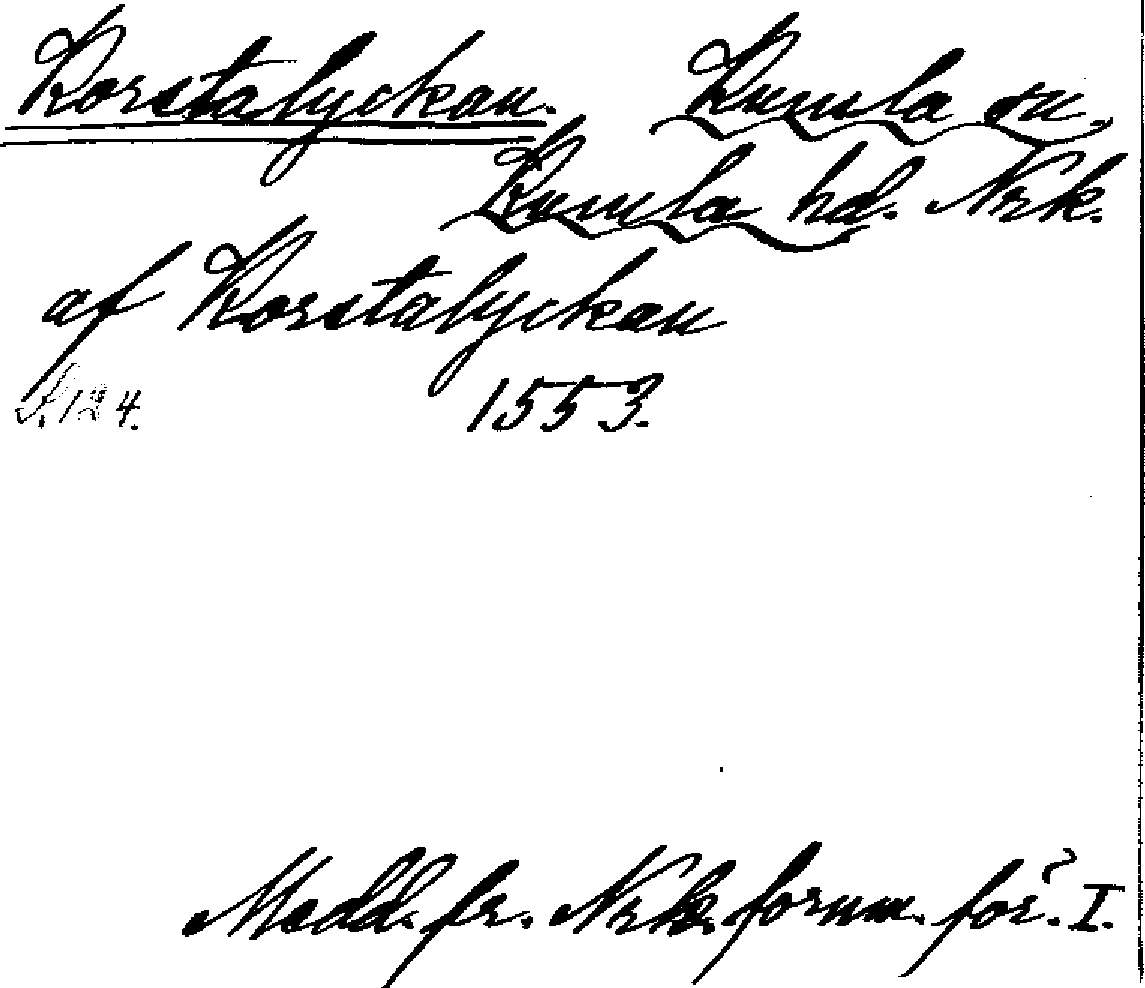 Korstalyckan. Kumla sn.
Kumla hd. Nrk.
af Korstalyckan
S. 124. 1553.
Medd. fr. Nrks. fornm. för. I.